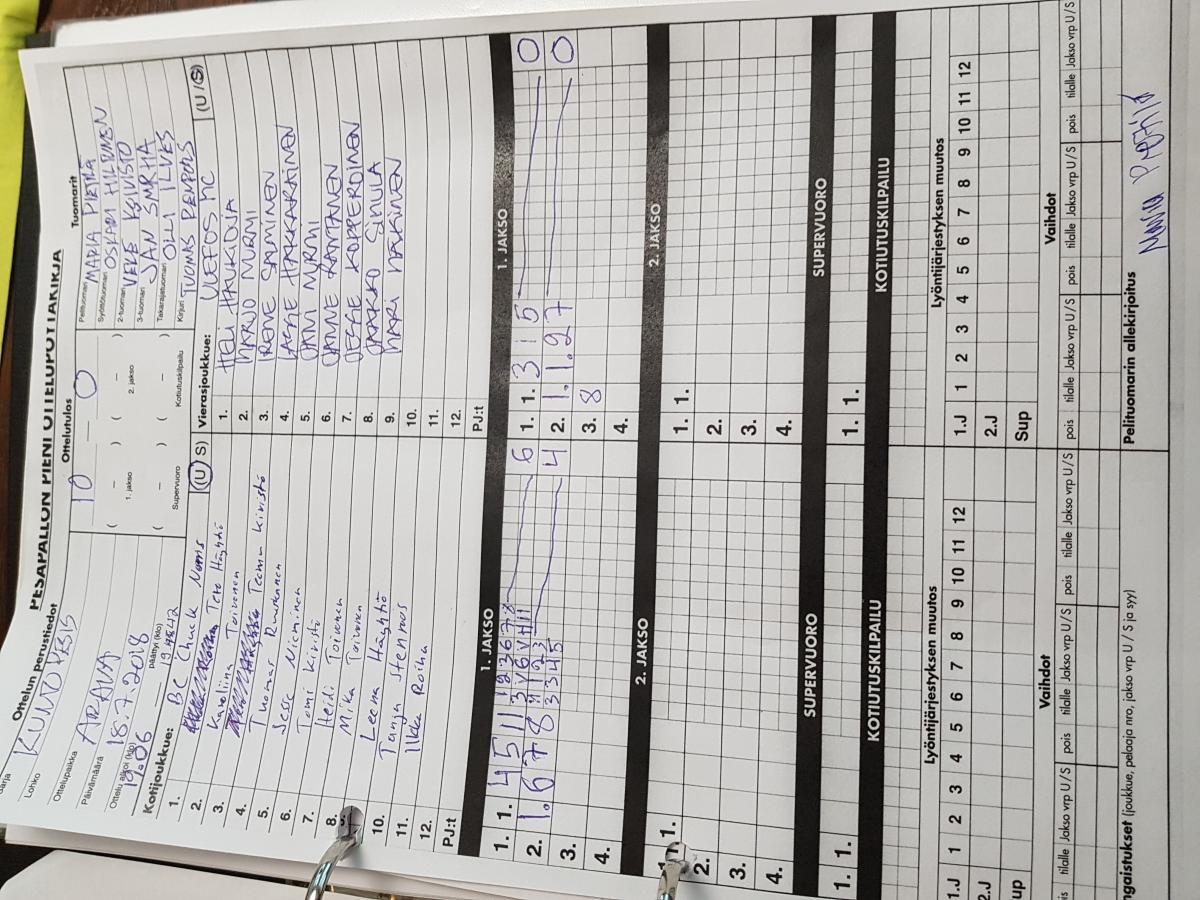 PESÄPALLON PIENI OTTELUPÖYTÄKIRJA
Ottelun perustiedot
Ottelutulos
Tuomarit
Lohko KUNTOPESIS
10 — 0
Pelituomari MARIA PIETILÄ
Ottelupaikka ARAVA
Syöttötuomari OSKARI HILTUNEN
( – ) ( – )
1. jakso
2. jakso
2-tuomari VELE KOIVISTO
Päivämäärä 18.7.2018
3-tuomari
Ottelu alkoi (klo) 19.06
päättyi (klo) 19.42
( – ) ( – )
Supervuoro
Kotiutuskilpailu
Takarajatuomari OLLI ILVES
Kirjuri TUOMAS
Kotijoukkue: BC Chuck Norris (U / S)
Vierasjoukkue: UEEFOS MC (U / S)
1. Tero Häyhtiö
2. Karoliina Toivonen
3. Teemu Kivistö
4. Tuomas Ruuskanen
5. Jesse Nieminen
6. Tomi Kivistö
7. Heidi Toivonen
8. Mika Toivonen
9. Leena Häyhtiö
10. Tanja Stenroos
11. Ilkka Roiha
12.
PJ:t
1. HELI HAUKOJA
2. MARJO NURMI
3. IRENE SALMINEN
4. HAKKARAINEN
5. JANI NURMI
6. JANNE KANTANEN
7. JESSE KOPPEROINEN
8. JAAKKO SIHULA
9. HARI HEIKINEN
10.
11.
12.
PJ:t
1. JAKSO
1. JAKSO
1. 1. 4 5 11 6
2. 1. 6 7 8 4
3.
4.
1. 1. 3 1 5 0
2. 1. 1. 2 7 0
3. 8
4.
2. JAKSO
2. JAKSO
1. 1.
2.
3.
4.
1. 1.
2.
3.
4.
SUPERVUORO
SUPERVUORO
1. 1.
1. 1.
KOTIUTUSKILPAILU
KOTIUTUSKILPAILU
Lyöntijärjestyksen muutos
Lyöntijärjestyksen muutos
1.J 1 2 3 4 5 6 7 8 9 10 11 12
2.J
up
1.J 1 2 3 4 5 6 7 8 9 10 11 12
2.J
Sup
Vaihdot
Vaihdot
is tilalle Jakso vrp U/S pois tilalle Jakso vrp U/S pois tilalle Jakso vrp U/S
pois tilalle Jakso vrp U/S pois tilalle Jakso vrp U/S pois tilalle Jakso vrp U/S
ngaistukset (joukkue, pelaaja nro, jakso vrp U / S ja syy)
Pelituomarin allekirjoitus
Maria Pietilä